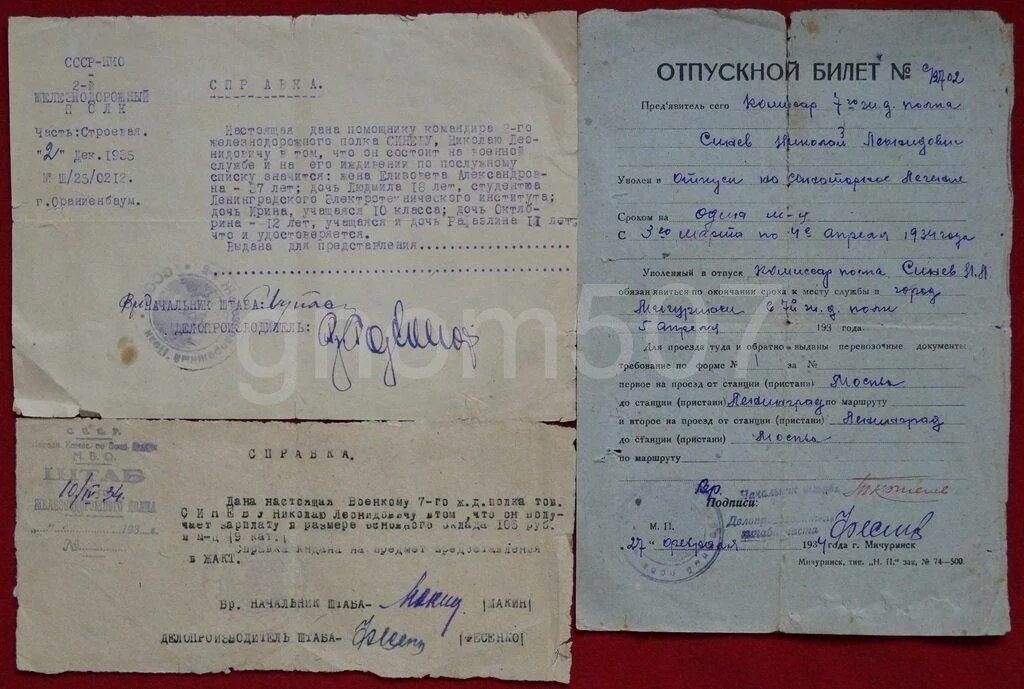 СССР-НКО
2-й
ЖЕЛЕЗНОДОРОЖНЫЙ
ПОЛК
Часть: Строевая.
"2" Дек. 1935
№ Ш/25/0212.
г. Ораниенбаум.
СПРАВКА.
Настоящая дана помощнику командира 2-го
железнодорожного полка СИНЕВУ, Николаю Лео-
нидовичу в том, что он состоит на военной
службе и на его иждивении по послужному
списку значится: жена Елизавета Александров-
на - 37 лет; дочь Людмила 18 лет, студентка
Ленинградского Электротехнического института;
дочь Ирина, учащаяся 10 класса; дочь Октяб-
рина - 12 лет, учащаяся и дочь 11 лет,
что и удостоверяется.
Выдана для представления
Вр. НАЧАЛЬНИК ШТАБА:
ДЕЛОПРОИЗВОДИТЕЛЬ:
СССР
ШТАБ
10/IV 34.
ЖЕЛЕЗНОДОРОЖНОГО ПОЛКА
193 г.
№
СПРАВКА.
Дана настоящая Военкому 7-го ж.д. полка тов.
СИНЕВУ Николаю Леонидовичу втом, что он полу-
чает зарплату в размере основного оклада руб.
в м-ц (9 кат.)
Справка выдана на предмет предоставления
в ЖАКТ.
Вр. НАЧАЛЬНИК ШТАБА- |МАКИН|
ДЕЛОПРОИЗВОДИТЕЛЬ ШТАБА- |ФЕСЕНКО|
ОТПУСКНОЙ БИЛЕТ №
Пред'явитель сего Комиссар 7го ж.д. полка
Синев Николай Леонидович
Уволен в Отпуск на санаторное лечение
Сроком на один м-ц
С 3го марта по 4е апреля 1934 года
Уволенный в отпуск Комиссар полка Синев Н.Л.
обязан явиться по окончании срока к месту службы в город
Мичуринск в 7й ж.д. полк
5 апреля 193 года.
Для проезда туда и обратно выданы перевозочные документы
требование по форме № 1 за №
первое на проезд от станции (пристани) Москва
до станции (пристани) Ленинград по маршруту
и второе на проезд от станции (пристани) Ленинград
до станции (пристани) Москва
по маршруту
Вр. Начальник штаба
Подписи:
Делопроизводитель
штаба части
М. П.
"27" февраля 1934 года г. Мичуринск
Мичуринск, тип. „Н. П." зак. № 74—500.
gnom507